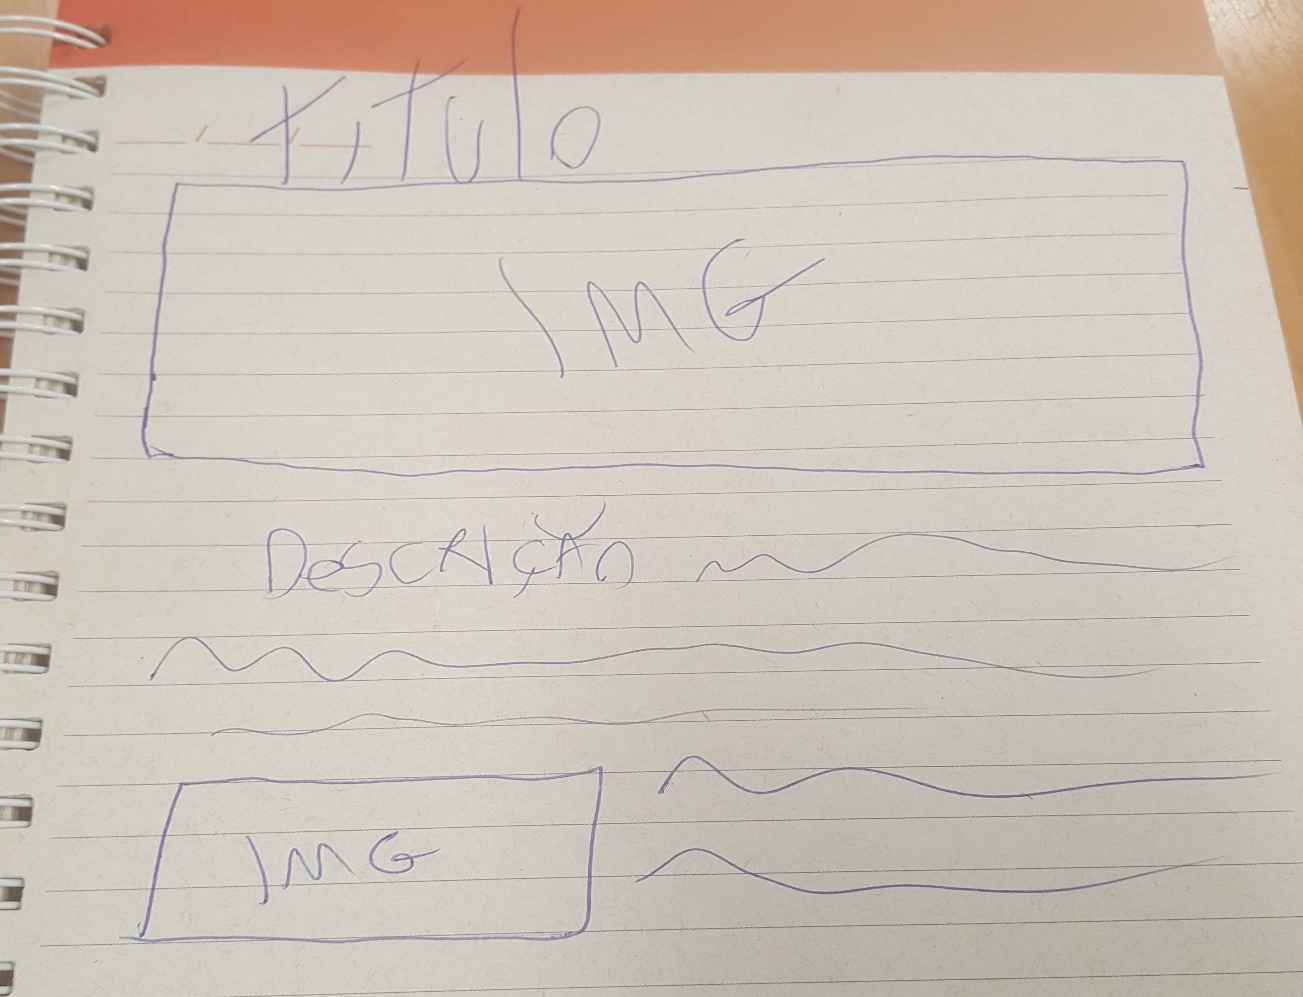 título
IMG
Descrição
IMG